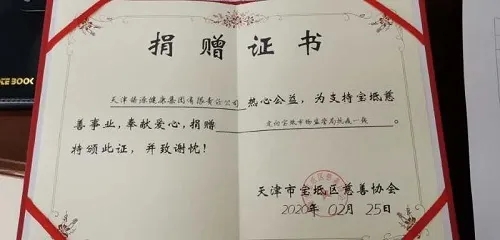 捐赠证书
天津 健康集团有限责任公司 热心公益，为支持宝坻慈
善事业，奉献爱心，捐赠 定向宝坻市场监管局抗疫一线 。
特颁此证，并致谢忱！
天津市宝坻区慈善协会
2020年 02月 25日
BOOK